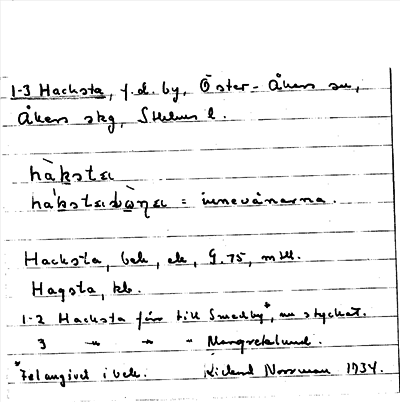 1-3 Hacksta, f.d. by, Öster-Åkers sn,
Åkers skg, Sthlms l.
hàksta
= innevånarna.
Hacksta, bek, ek, G. 75, mtl.
Hagsta, kb.
1-2 Hacksta förr till Smedby*, nu styckat.
3 " " " Margretelund.
*Felangivet i bek. Rickard Norrman 1934.